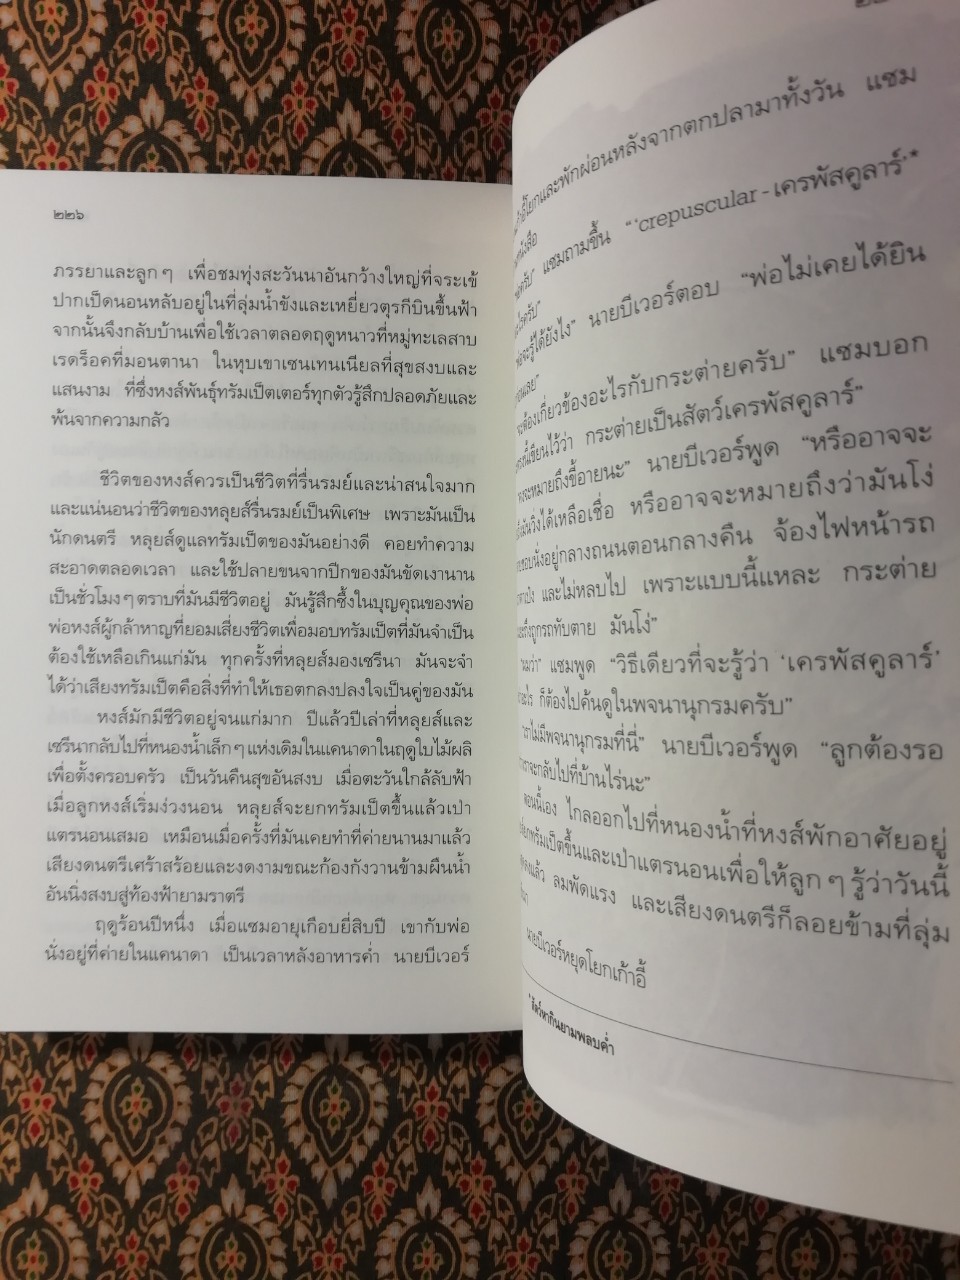 ๒๒๖
ภรรยาและลูกๆ เพื่อชมทุ่งสะวันนาอันกว้างใหญ่ที่จระเข้
ปากเป็ดนอนหลับอยู่ในที่ลุ่มน้ำขังและเหยี่ยวตุรกีบินขึ้นฟ้า
จากนั้นจึงกลับบ้านเพื่อใช้เวลาตลอดฤดูหนาวที่หมู่ทะเลสาบ
เรดร็อคที่มอนตานา ในหุบเขาเซนเทนเนียลที่สุขสงบและ
แสนงาม ที่ซึ่งหงส์พันธุ์ทรัมเป็ตเตอร์ทุกตัวรู้สึกปลอดภัยและ
พ้นจากความกลัว
ชีวิตของหงส์ควรเป็นชีวิตที่รื่นรมย์และน่าสนใจมาก
และแน่นอนว่าชีวิตของหลุยส์รื่นรมย์เป็นพิเศษ เพราะมันเป็น
นักดนตรี หลุยส์ดูแลทรัมเป็ตของมันอย่างดี คอยทำความ
สะอาดตลอดเวลา และใช้ปลายขนจากปีกของมันขัดเงานาน
เป็นชั่วโมงๆ ตราบที่มันมีชีวิตอยู่ มันรู้สึกซึ้งในบุญคุณของพ่อ
พ่อหงส์ผู้กล้าหาญที่ยอมเสี่ยงชีวิตเพื่อมอบทรัมเป็ตที่มันจำเป็น
ต้องใช้เหลือเกินแก่มัน ทุกครั้งที่หลุยส์มองเซรีนา มันจะจำ
ได้ว่าเสียงทรัมเป็ตคือสิ่งที่ทำให้เธอตกลงปลงใจเป็นคู่ของมัน
หงส์มักมีชีวิตอยู่จนแก่มาก ปีแล้วปีเล่าที่หลุยส์และ
เซรีนากลับไปที่หนองน้ำเล็กๆ แห่งเดิมในแคนาดาในฤดูใบไม้ผลิ
เพื่อตั้งครอบครัว เป็นวันคืนสุขอันสงบ เมื่อตะวันใกล้ลับฟ้า
เมื่อลูกหงส์เริ่มง่วงนอน หลุยส์จะยกทรัมเป็ตขึ้นแล้วเป่า
แตรนอนเสมอ เหมือนเมื่อครั้งที่มันเคยทำที่ค่ายนานมาแล้ว
เสียงดนตรีเศร้าสร้อยและงดงามขณะก้องกังวานข้ามผืนน้ำ
อันนิ่งสงบสู่ท้องฟ้ายามราตรี
ฤดูร้อนปีหนึ่ง เมื่อแซมอายุเกือบยี่สิบปี เขากับพ่อ
นั่งอยู่ที่ค่ายในแคนาดา เป็นเวลาหลังอาหารค่ำ นายบีเวอร์
และพักผ่อนหลังจากตกปลามาทั้งวัน แซม
แซมถามขึ้น “ ‘crepuscular - เครพัสคูลาร์’*
นายบีเวอร์ตอบ “พ่อไม่เคยได้ยิน
ต้องเกี่ยวข้องอะไรกับกระต่ายครับ” แซมบอก
เขียนไว้ว่า กระต่ายเป็นสัตว์เครพัสคูลาร์”
จะหมายถึงขี้อายนะ” นายบีเวอร์พูด “หรืออาจจะ
มันวิ่งได้เหลือเชื่อ หรืออาจจะหมายถึงว่ามันโง่
ชอบนั่งอยู่กลางถนนตอนกลางคืน จ้องไฟหน้ารถ
และไม่หลบไป เพราะแบบนี้แหละ กระต่าย
ถึงถูกรถทับตาย มันโง่”
แซมพูด “วิธีเดียวที่จะรู้ว่า ‘เครพัสคูลาร์’
ก็ต้องไปค้นดูในพจนานุกรมครับ”
ไม่มีพจนานุกรมที่นี่” นายบีเวอร์พูด “ลูกต้องรอ
จะกลับไปที่บ้านไร่นะ”
ตอนนี้เอง ไกลออกไปที่หนองน้ำที่หงส์พักอาศัยอยู่
ทรัมเป็ตขึ้นและเป่าแตรนอนเพื่อให้ลูกๆ รู้ว่าวันนี้
แล้ว ลมพัดแรง และเสียงดนตรีก็ลอยข้ามที่ลุ่ม
นายบีเวอร์หยุดโยกเก้าอี้
* สัตว์หากินยามพลบค่ำ